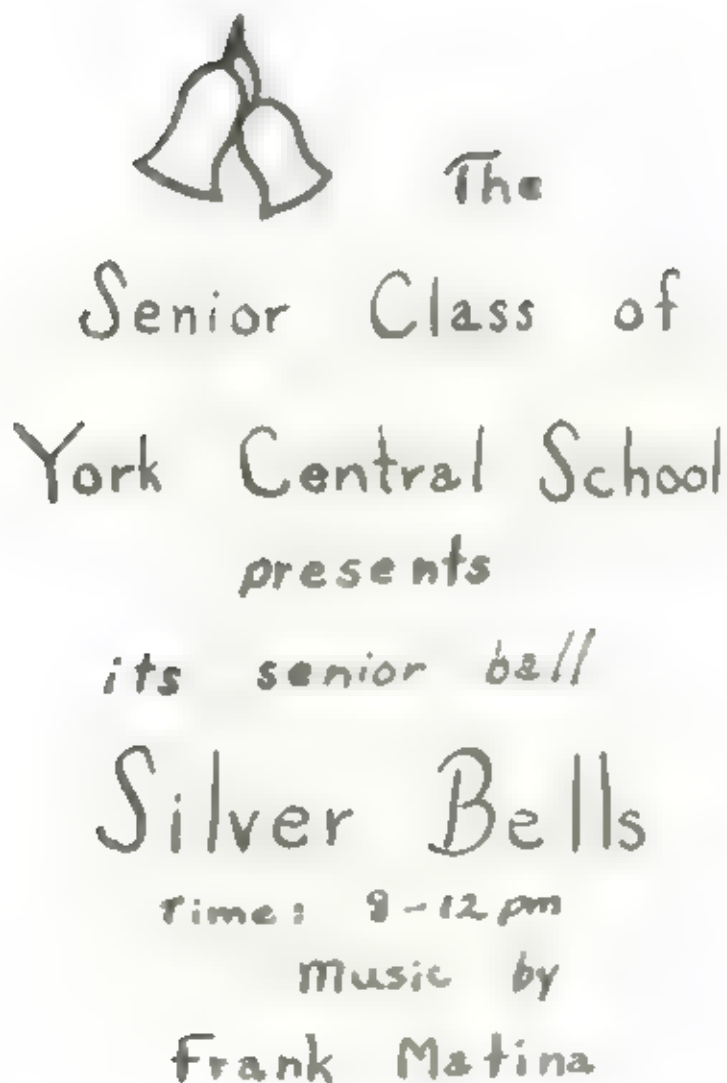 The
Senior Class of
York Central School
presents
its senior ball
Silver Bells
Time: 8-12 pm
Music by
Frank Matina